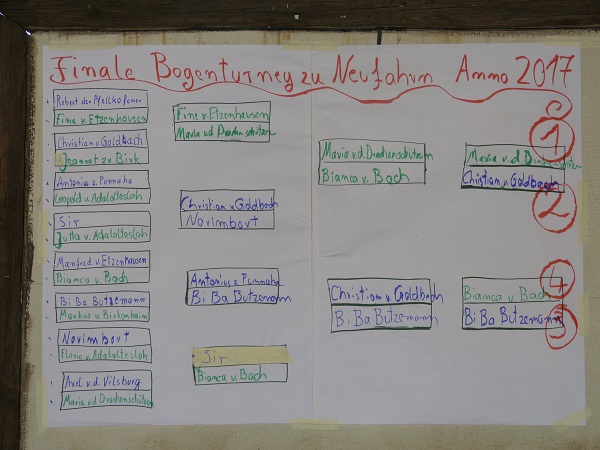 Finale Bogenturney zu Neufahrn Anno 2017
Robert der
Fine v. Etzenhausen
Christian v. Goldbach
Jeannot z. Birk
Antonius z. Punmaha
Leopold v. Adaloltesloh
Sir
Jutta v. Adaloltesloh
Manfred v. Etzenhausen
Bianca v. Bach
Bi Ba Butzemann
Markus v. Birkenheim
Norimbort
Flavio v. Adaloltesloh
Axel v.d. Vilsburg
Maria v.d. Drachenschützen
Fine v. Etzenhausen
Maria v.d. Drachenschützen
Christian v. Goldbach
Norimbort
Antonius z. Punmaha
Bi Ba Butzemann
Sir
Bianca v. Bach
Maria v.d. Drachenschützen
Bianca v. Bach
Christian v. Goldbach
Bi Ba Butzemann
1
Maria v.d. Drachenschützen
Christian v. Goldbach
2
4
Bianca v. Bach
Bi Ba Butzemann
3